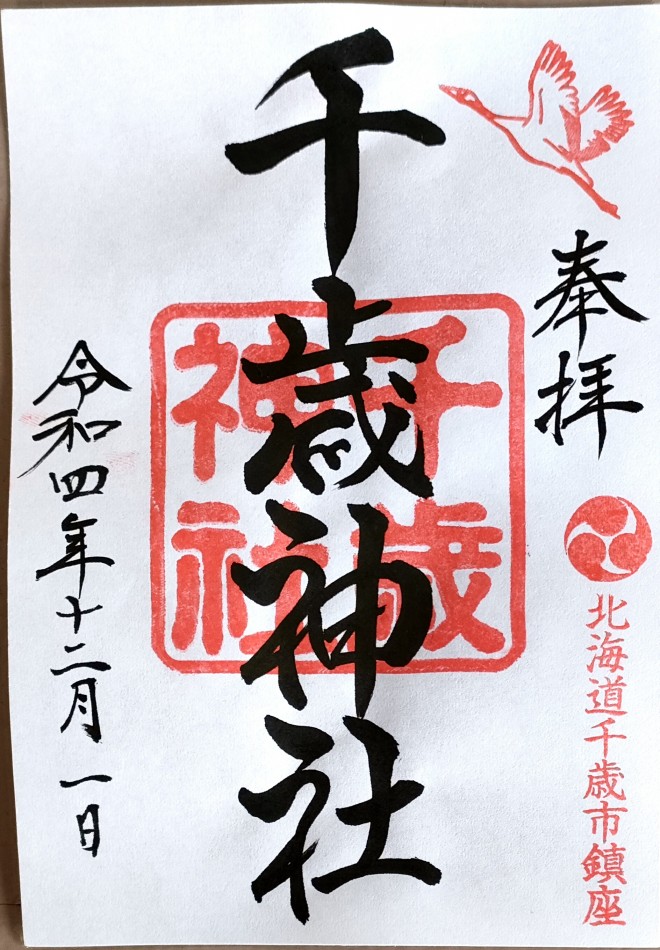 奉拝
北海道千歳市鎮座
千歳神社
千歳
神社
令和四年十二月一日